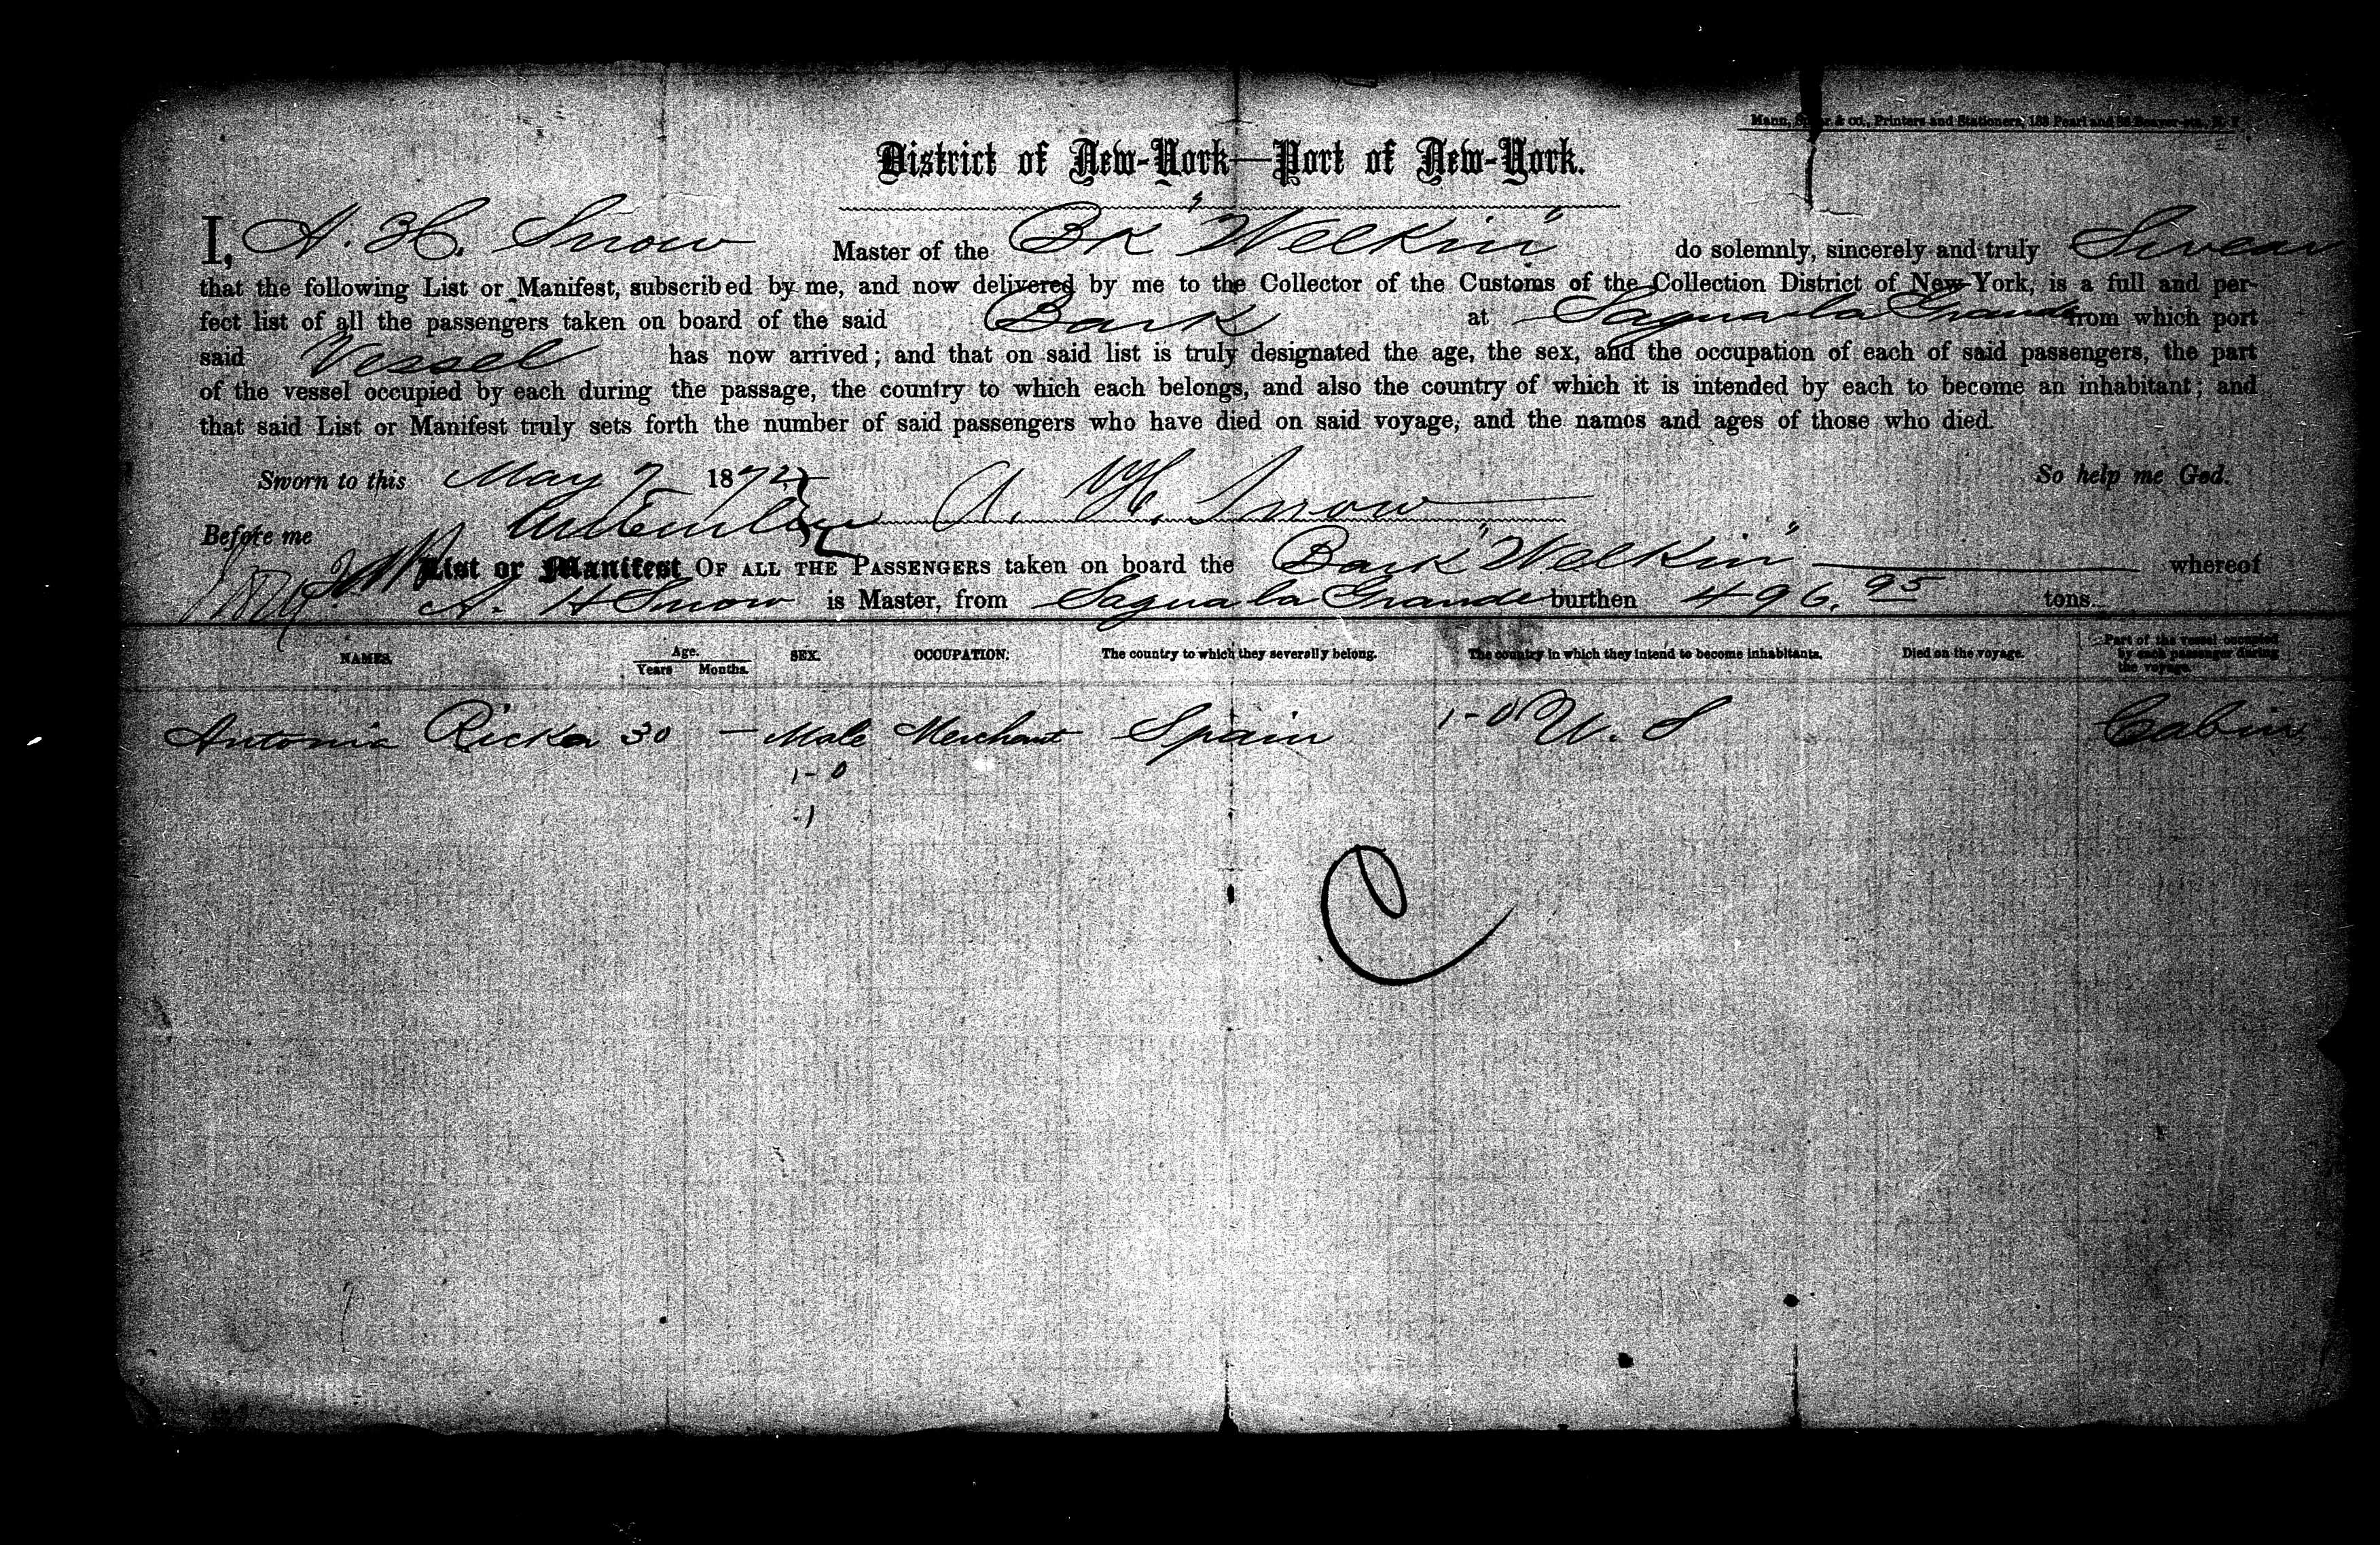 Mann, & Co., Printers and Stationers, 183 Pearl and Beaver-sts., N. Y.
District of New-York—Port of New-York.
I, A. H. Snow Master of the Bk "Welkin" do solemnly, sincerely and truly Swear
that the following List or Manifest, subscribed by me, and now delivered by me to the Collector of the Customs of the Collection District of New-York, is a full and per-
fect list of all the passengers taken on board of the said Bark at Sagua la Grande from which port
said Vessel has now arrived; and that on said list is truly designated the age, the sex, and the occupation of each of said passengers, the part
of the vessel occupied by each during the passage, the country to which each belongs, and also the country of which it is intended by each to become an inhabitant; and
that said List or Manifest truly sets forth the number of said passengers who have died on said voyage, and the names and ages of those who died.
Sworn to this May 7 1872 So help me God.
A. H. Snow
Before me
List or Manifest OF ALL THE PASSENGERS taken on board the Bark "Welkin" whereof
A. H Snow is Master, from Sagua la Grande burthen 496. 95 tons.
NAMES. Age. Years Months. SEX. OCCUPATION. The country to which they severally belong. The country in which they intend to become inhabitants. Died on the voyage. Part of the vessel occupied by each passenger during the voyage.
Antonia Ricka 30 — Male Merchant Spain 1-0 U. S Cabin
1-0
1
C